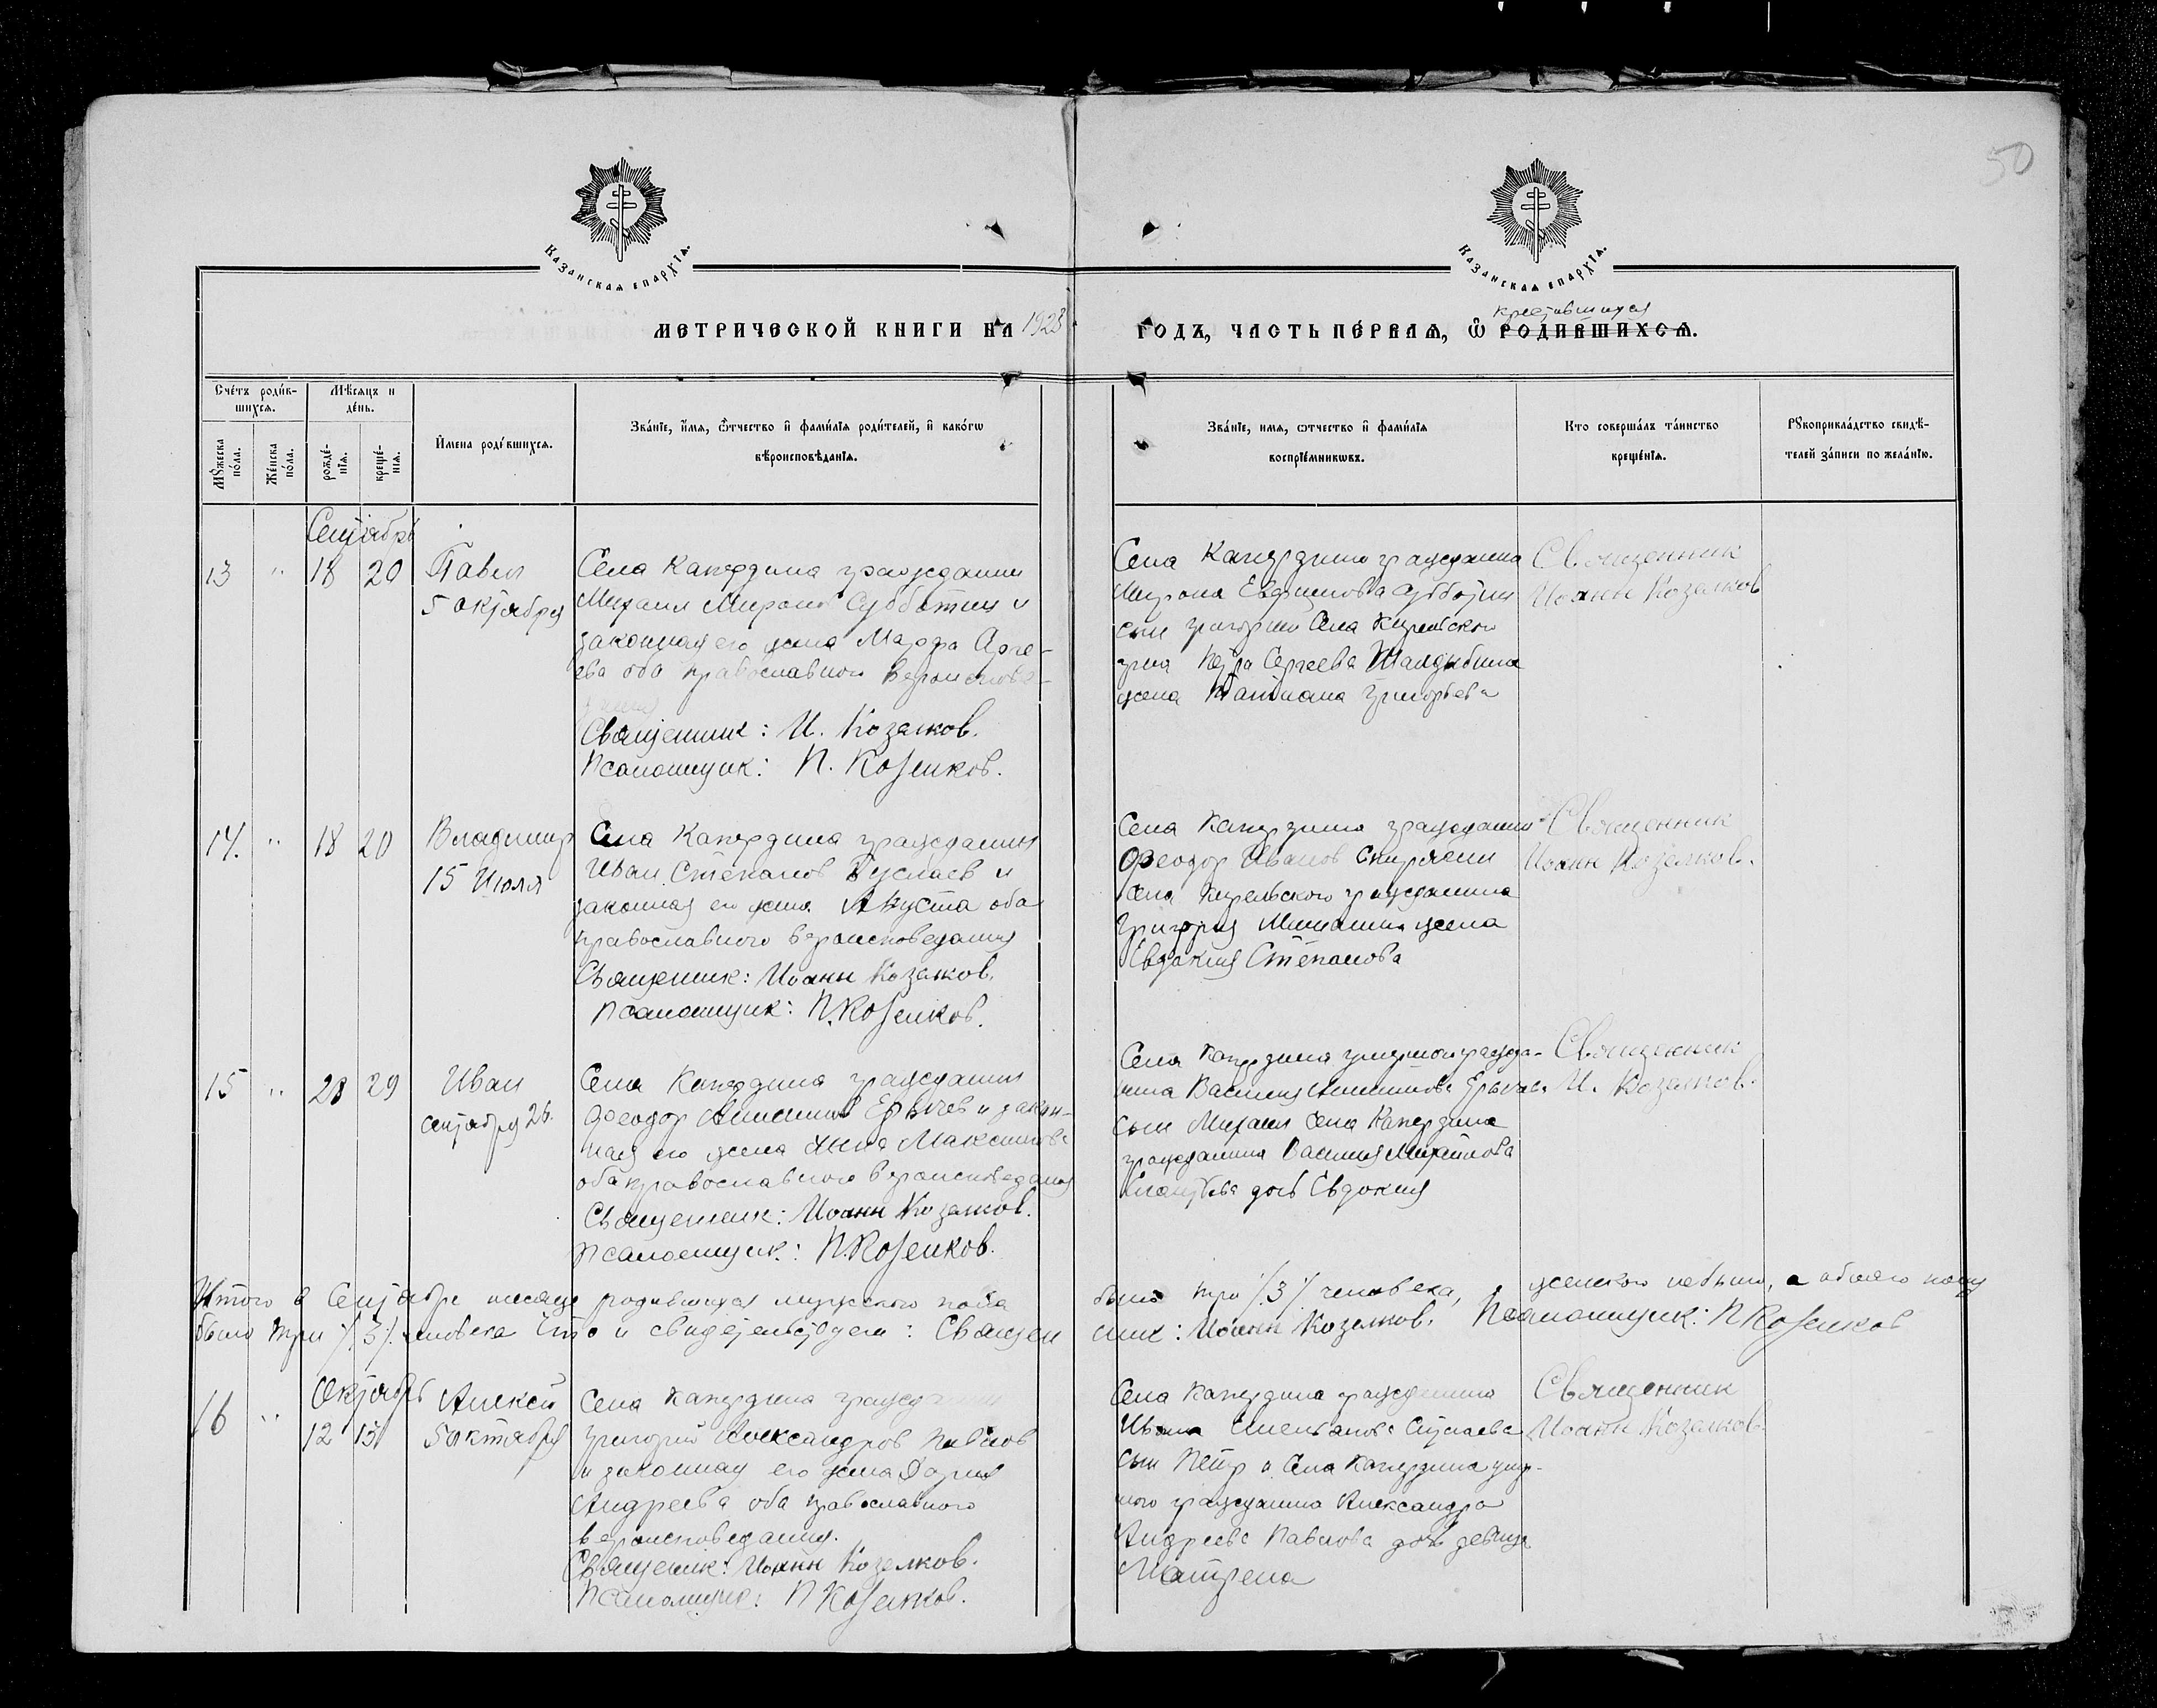 50
Казанская епархїѧ.
Казанская епархїѧ.
МЕТРИЧЕСКОЙ КНИГИ НА 1923
ГОДЪ, ЧАСТЬ ПЕ́РВАѦ, Ѿ РОДИВШИХСѦ.
крестившихся
Сче́тъ роди́вшихсѧ.
Мѣ́сѧцъ и де́нь.
Мꙋ́жеска по́ла.
Же́нска по́ла.
рожде́нїѧ.
креще́нїѧ.
И҆мена роди́вшихсѧ.
Зва́нїе, и҆́мѧ, ѻ҆́тчество и҆ фами́лїѧ роди́телей, и҆ како́гѡ
вѣроисповѣ́данїѧ.
Зва́нїе, имѧ, ѻтчество и҆ фами́лїѧ
воспрїе́мникѡвъ.
Кто соверша́лъ та́инство
креще́нїѧ.
Рꙋкоприкла́дство свидѣ́-
телей за́писи по жела́нїю.
Сентябрь
13 " 18 20 Павел
5 октября
Села Капердина гражданин
Михаил Миронов Субботин и
законная его жена Марфа
оба православнои вероиспове-
Священник: И. Козелков.
Псаломщик: П. Козелков.
Села Капердина гражданина
Мирона Субботин
сын Григорий Села
Петра Сергеева
жена Григорьева
Священник
Иоанн Козелков
14. " 18 20 Владимир
15 Июля
Села Капердина гражданин
Иван Степанов и
законная его жена Августа оба
православного вероисповедания
Священик: Иоанн Козелков.
Псаломщик: П. Козелков.
Села Капердина гражданин
Феодор Иванов
Села гражданина
Григория жена
Евдокия Степанова
Священник
Иоанн Козелков.
15 " 28 29 Иван
сентября 26.
Села Капердина гражданин
Феодор и закон-
ная его жена Анна Максимова
оба православного вероисповедания
Священик: Иоанн Козелков.
Псаломщик: П. Козелков.
Села Капердина гражда-
нина Василия
сын Михаил Села Капердина
гражданина Василия Михайлова
дочь Евдокия
Священник
И. Козелков.
Итого в Сентябре месяце родившихся мужского пола было три /3/ человека, женского небыло, а обоего полу
было три /3/ человека что и свидетельствуем: Священник: Иоанн Козелков. Псаломщик: П Козелков
Октябрь
16 " 12 13 Алексей
5 октября
Села Капердина
Григорий Александров Павлов
и законная его жена Дария
Андреева оба православного
вероисповедания.
Священик: Иоанн Козелков.
Псаломщик: П Козелков.
Села Капердина гражданина
Ивана
сын Петр и Села Капердина умер-
шого гражданина Александра
Андреева Павлова дочь девица
Матрена
Священник
Иоанн Козелков.